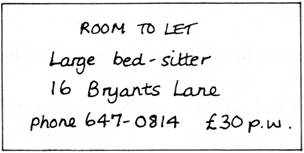 ROOM TO LET
Large bed-sitter
16 Bryants Lane
phone 647-0814 £30 p.w.